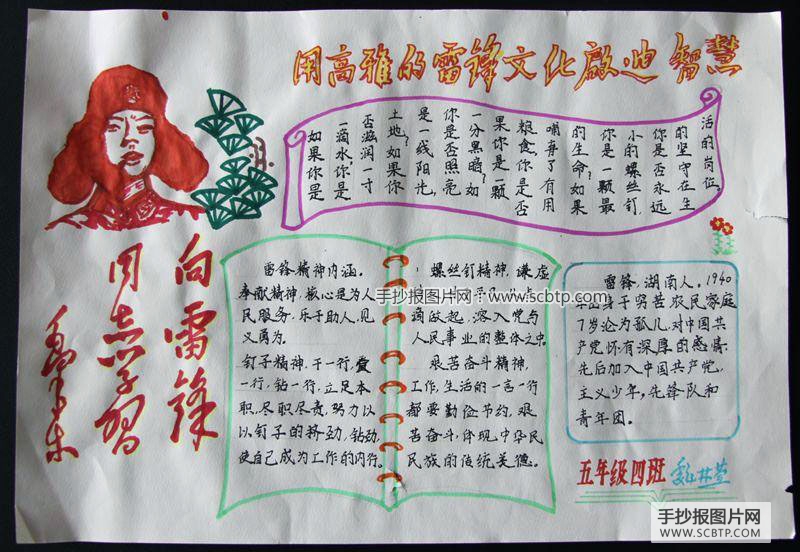 用高雅的雷锋文化启迪智慧
如果你是
一滴水,你是
否滋润一寸
土地?如果你
是一线阳光,
你是否照亮
一分黑暗?如
果你是一颗
粮食,你是否
哺育了有用
的生命?如果
你是一颗最
小的螺丝钉,
你是否永远
的坚守在生
活的岗位
向雷锋
同志学习
毛泽东
雷锋精神内涵。
奉献精神,核心是为人
民服务,乐于助人,见
义勇为。
钉子精神,干一行,爱
一行,钻一行,立足本
职,尽职尽责,努力以
以钉子的挤劲,钻劲,
使自己成为工作的内行。
螺丝钉精神,谦虚
调做起,溶入党与
人民事业的整体之中。
艰苦奋斗精神,
工作,生活的一言一行
都要勤俭节约,艰
苦奋斗,体现中华民
民族的传统美德。
雷锋,湖南人。1940
出身于穷苦农民家庭
7岁沦为孤儿,对中国共
产党怀有深厚的感情,
先后加入中国共产党,
主义少年,先锋队和
青年团。
五年级四班
手抄报图片网:www.scbtp.com
手抄报图片网
WWW.SCBTP.COM